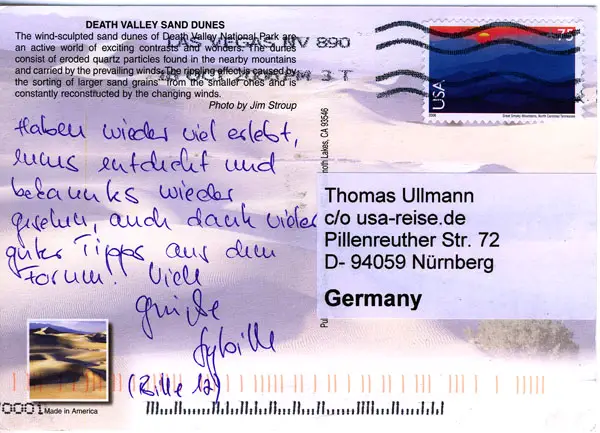 DEATH VALLEY SAND DUNES
The wind-sculpted sand dunes of Death Valley National Park are
an active world of exciting contrasts and wonders. The dunes
consist of eroded quartz particles found in the nearby mountains
and carried by the prevailing winds. The rippling effect is caused by
the sorting of larger sand grains from the smaller ones and is
constantly reconstructed by the changing winds.
Photo by Jim Stroup
LAS VEGAS NV 890
PM 3 T
USA
Great Smoky Mountains, North Carolina/Tennessee
Haben wieder viel erlebt,
neues entdeckt und
bekanntes wieder
gesehen, auch dank vieler
guter Tipps aus dem
Forum. Viele
Grüße
Sybille
(Bille 12)
Lakes, CA 93546
Thomas Ullmann
c/o usa-reise.de
Pillenreuther Str. 72
D- 94059 Nürnberg
Germany
70001
Made in America